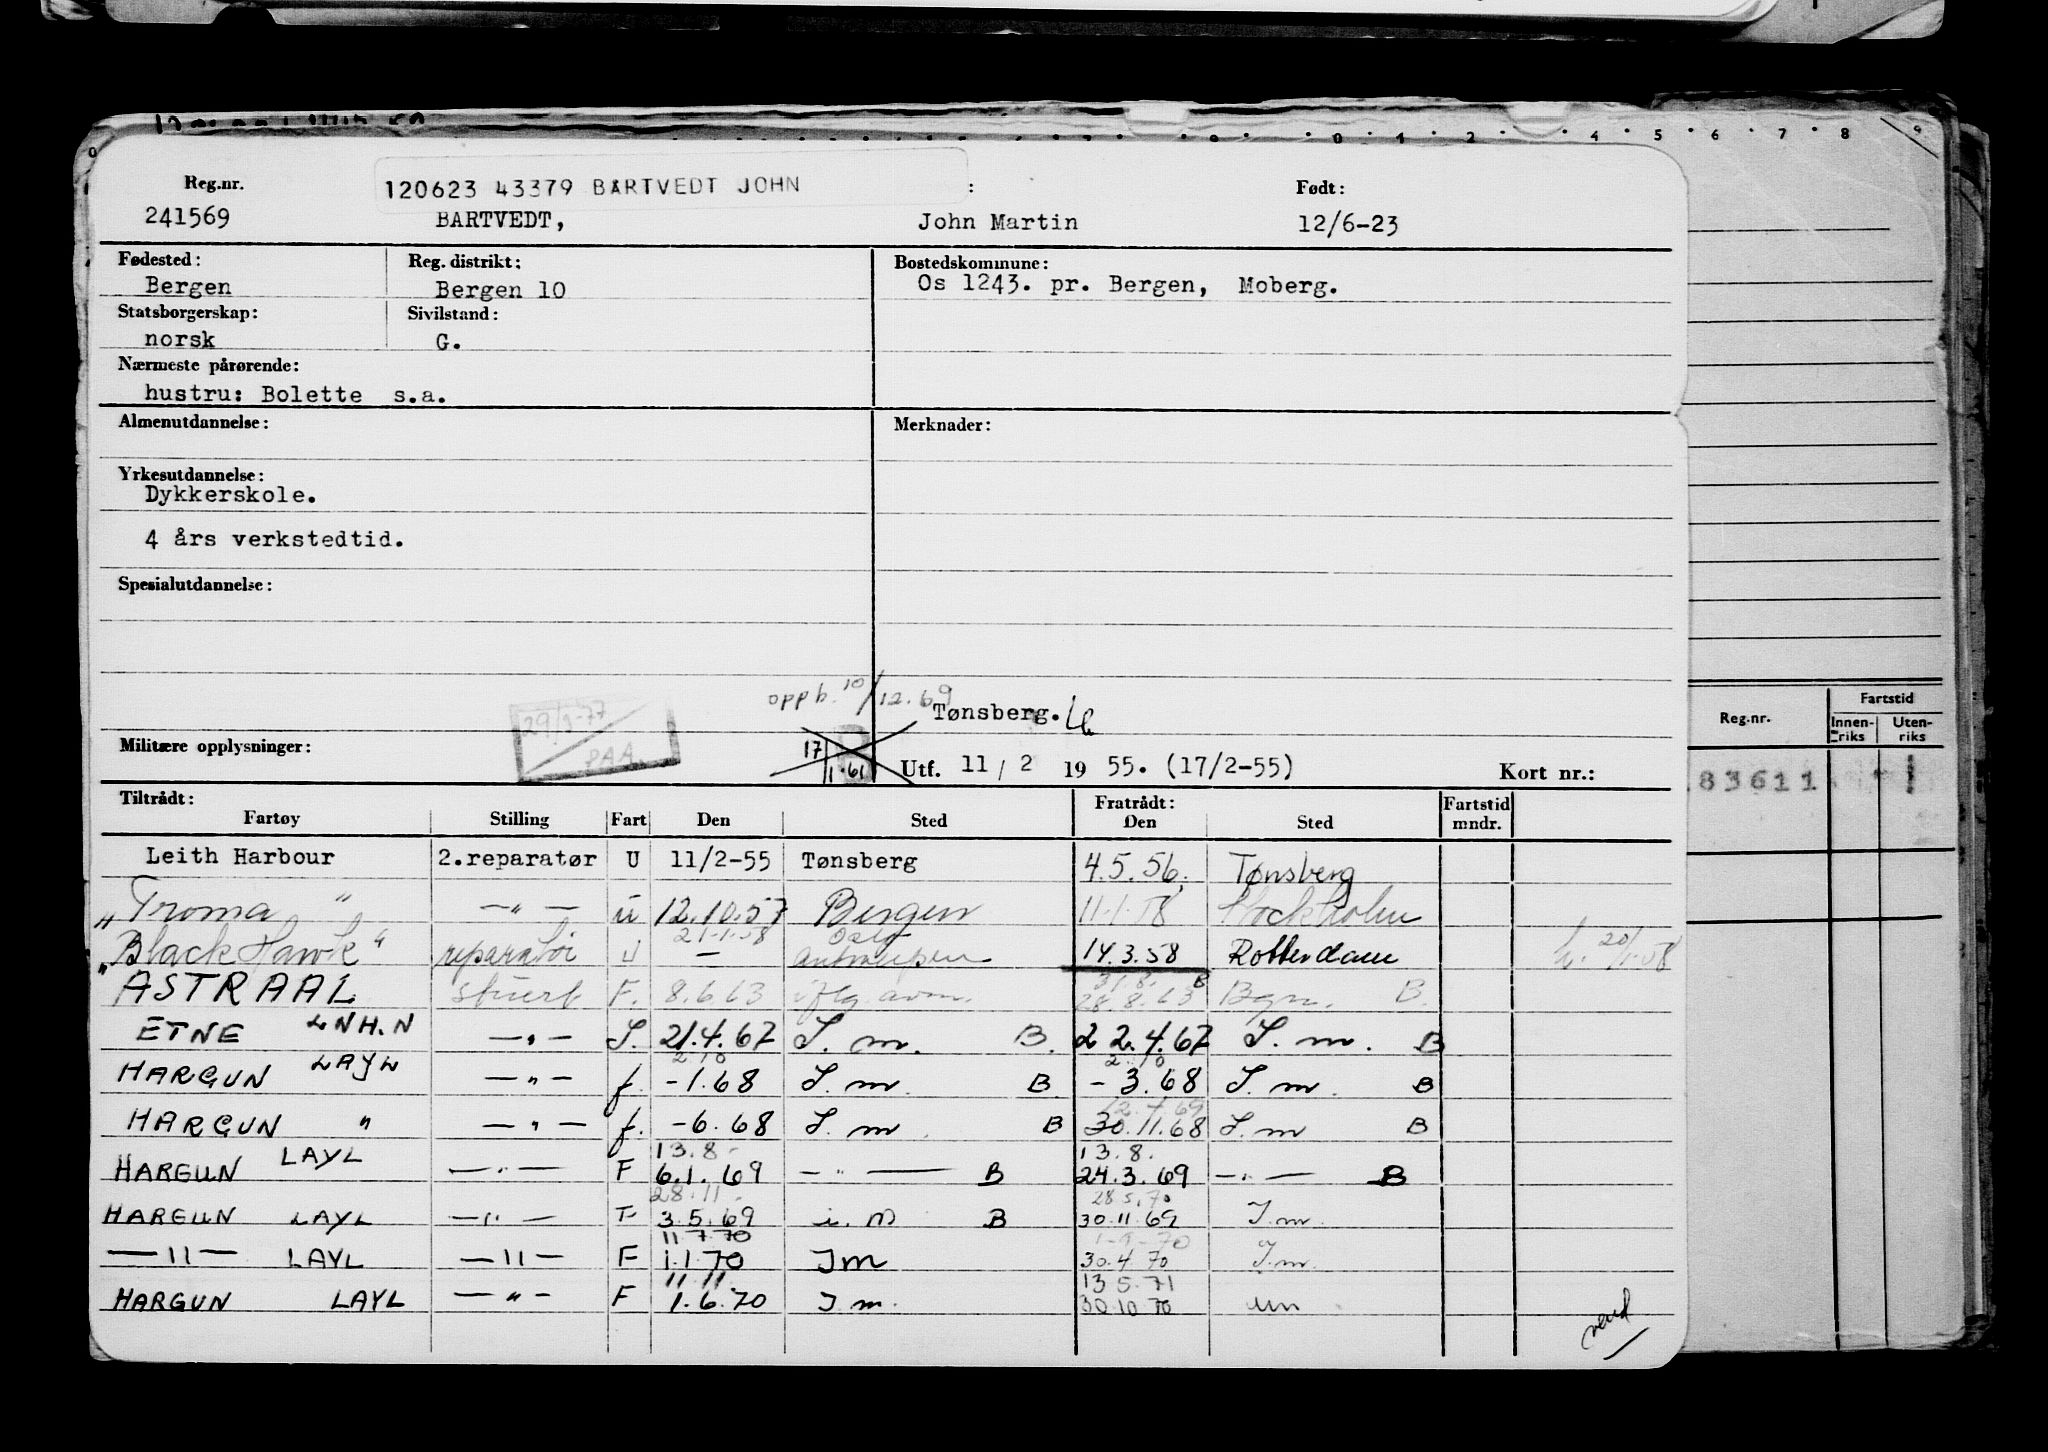 0 1 2 4 5 6 7 8 9
Reg.nr. 120623 43379 BARTVEDT JOHN : Født:
241569 BARTVEDT, John Martin 12/6-23
Fødested: Reg. distrikt: Bostedskommune:
Bergen Bergen 10 Os 1243. pr. Bergen, Moberg.
Statsborgerskap: Sivilstand:
norsk G.
Nærmeste pårørende:
hustru: Bolette s.a.
Almenutdannelse: Merknader:
Yrkesutdannelse:
Dykkerskole.
4 års verkstedtid.
Spesialutdannelse:
oppg. 10/12.69
29/9-77 Tønsberg.
PAA
Militære opplysninger: 17/1.61 Utf. 11/2 1955. (17/2-55) Kort nr.:
Reg.nr. Fartstid
Innen-riks Uten-riks
83611
Tiltrådt: Fratrådt: Fartstid
Fartøy Stilling Fart Den Sted Den Sted mndr.
Leith Harbour 2.reparatør U 11/2-55 Tønsberg 4.5.56. Tønsberg
"Troma" —"— u 12.10.57 Bergen 11.1.58 Stockholm
21.1.58 Oslo 20/1.58
"Black Hawk" reparatør u — Antwerpen 14.3.58 Rotterdam
31.8. B
ASTRAAL stuert F. 8.6.63 28.8.63 Bgn. B.
ETNE LNHN —"— S. 21.4.67 S. m. B. 22.4.67 S. m. B
2 10 2 10
HARGUN LAYL —"— f. -1.68 S. m. B - 3.68 S. m. B
12.4.69
HARGUN " —"— f. -6.68 S. m. B 30.11.68 S. m B
13.8- 13.8.
HARGUN LAYL —"— F 6.1.69 —"— B 24.3.69 —"— B
28.11. 28 5.70
HARGUN LAYL —"— F 3.5.69 B 30.11.69 I.m.
11 7 70 1-9-70
—"— LAYL —"— F 1.1.70 Im 30.4 70 I.m.
11.11. 13 5.71
HARGUN LAYL —"— F 1.6.70 I m. 30.10 70
vend